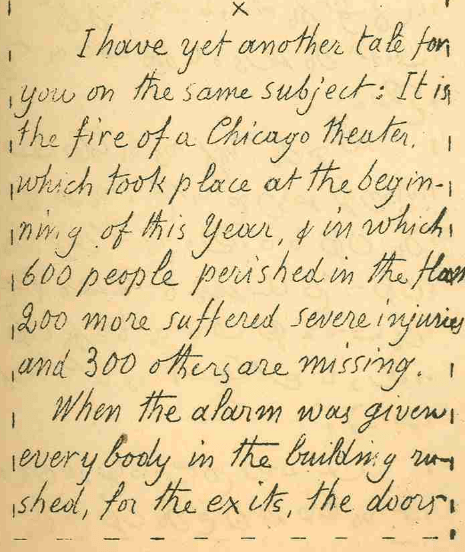 ×
I have yet another tale for
you on the same subject: It is
the fire of a Chicago theater,
which took place at the begin-
ning of this Year, & in which
600 people perished in the flam
200 more suffered severe injuries
and 300 others are missing.
When the alarm was given
every body in the building ru-
shed, for the exits, the doors